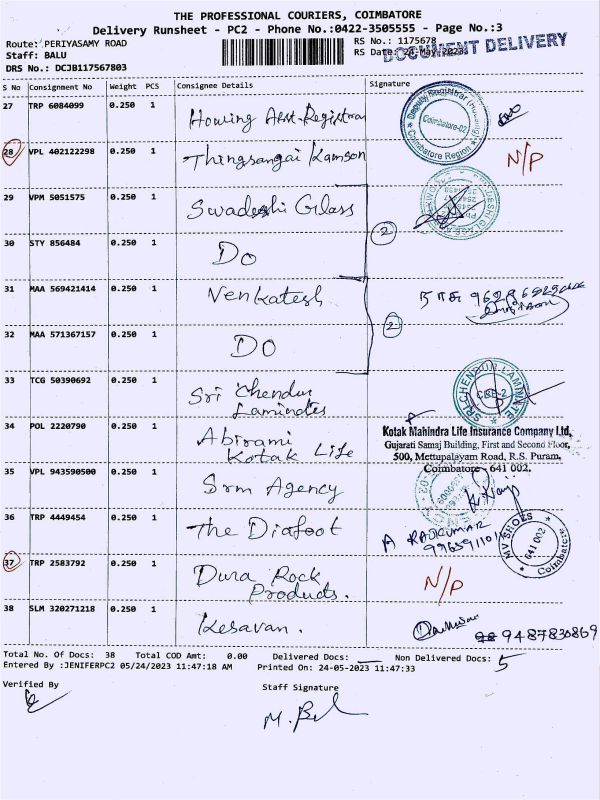 THE PROFESSIONAL COURIERS, COIMBATORE
Delivery Runsheet - PC2 - Phone No.:0422-3505555 - Page No.:3
Route: PERIYASAMY ROAD
Staff: BALU
DRS No.: DCJB117567803
RS No.: 1175678
RS Date: 24-May-2023
DOCUMENT DELIVERY
S No Consignment No Weight PCS Consignee Details Signature
27 TRP 6084099 0.250 1 Housing Asst-Registrar
Deputy Registrar
Coimbatore-02
Coimbatore Region
28 VPL 402122298 0.250 1 Thingsangai Kamson N/P
29 VPM 5051575 0.250 1 Swadeshi Glass
2
30 STY 856484 0.250 1 Do
31 MAA 569421414 0.250 1 Venkatesh
2
32 MAA 571367157 0.250 1 Do
33 TCG 50390692 0.250 1 Sri Chendur
Laminates
SRI CHENDUR LAMINATE
CBE-2
34 POL 2220790 0.250 1 Abirami
Kotak Life
Kotak Mahindra Life Insurance Company Ltd,
Gujarati Samaj Building, First and Second Floor,
500, Mettupalayam Road, R.S. Puram,
Coimbatore - 641 002.
35 VPL 943590500 0.250 1 Srm Agency
36 TRP 4449454 0.250 1 The Diafoot
A RAJKUMAR
MV SHOES
641 002
Coimbatore
37 TRP 2583792 0.250 1 Dura Rock
Products. N/P
38 SLM 320271218 0.250 1 Kesavan.
9487830869
Total No. Of Docs: 38 Total COD Amt: 0.00 Delivered Docs: Non Delivered Docs: 5
Entered By :JENIFERPC2 05/24/2023 11:47:18 AM Printed On: 24-05-2023 11:47:33
Verified By
Staff Signature